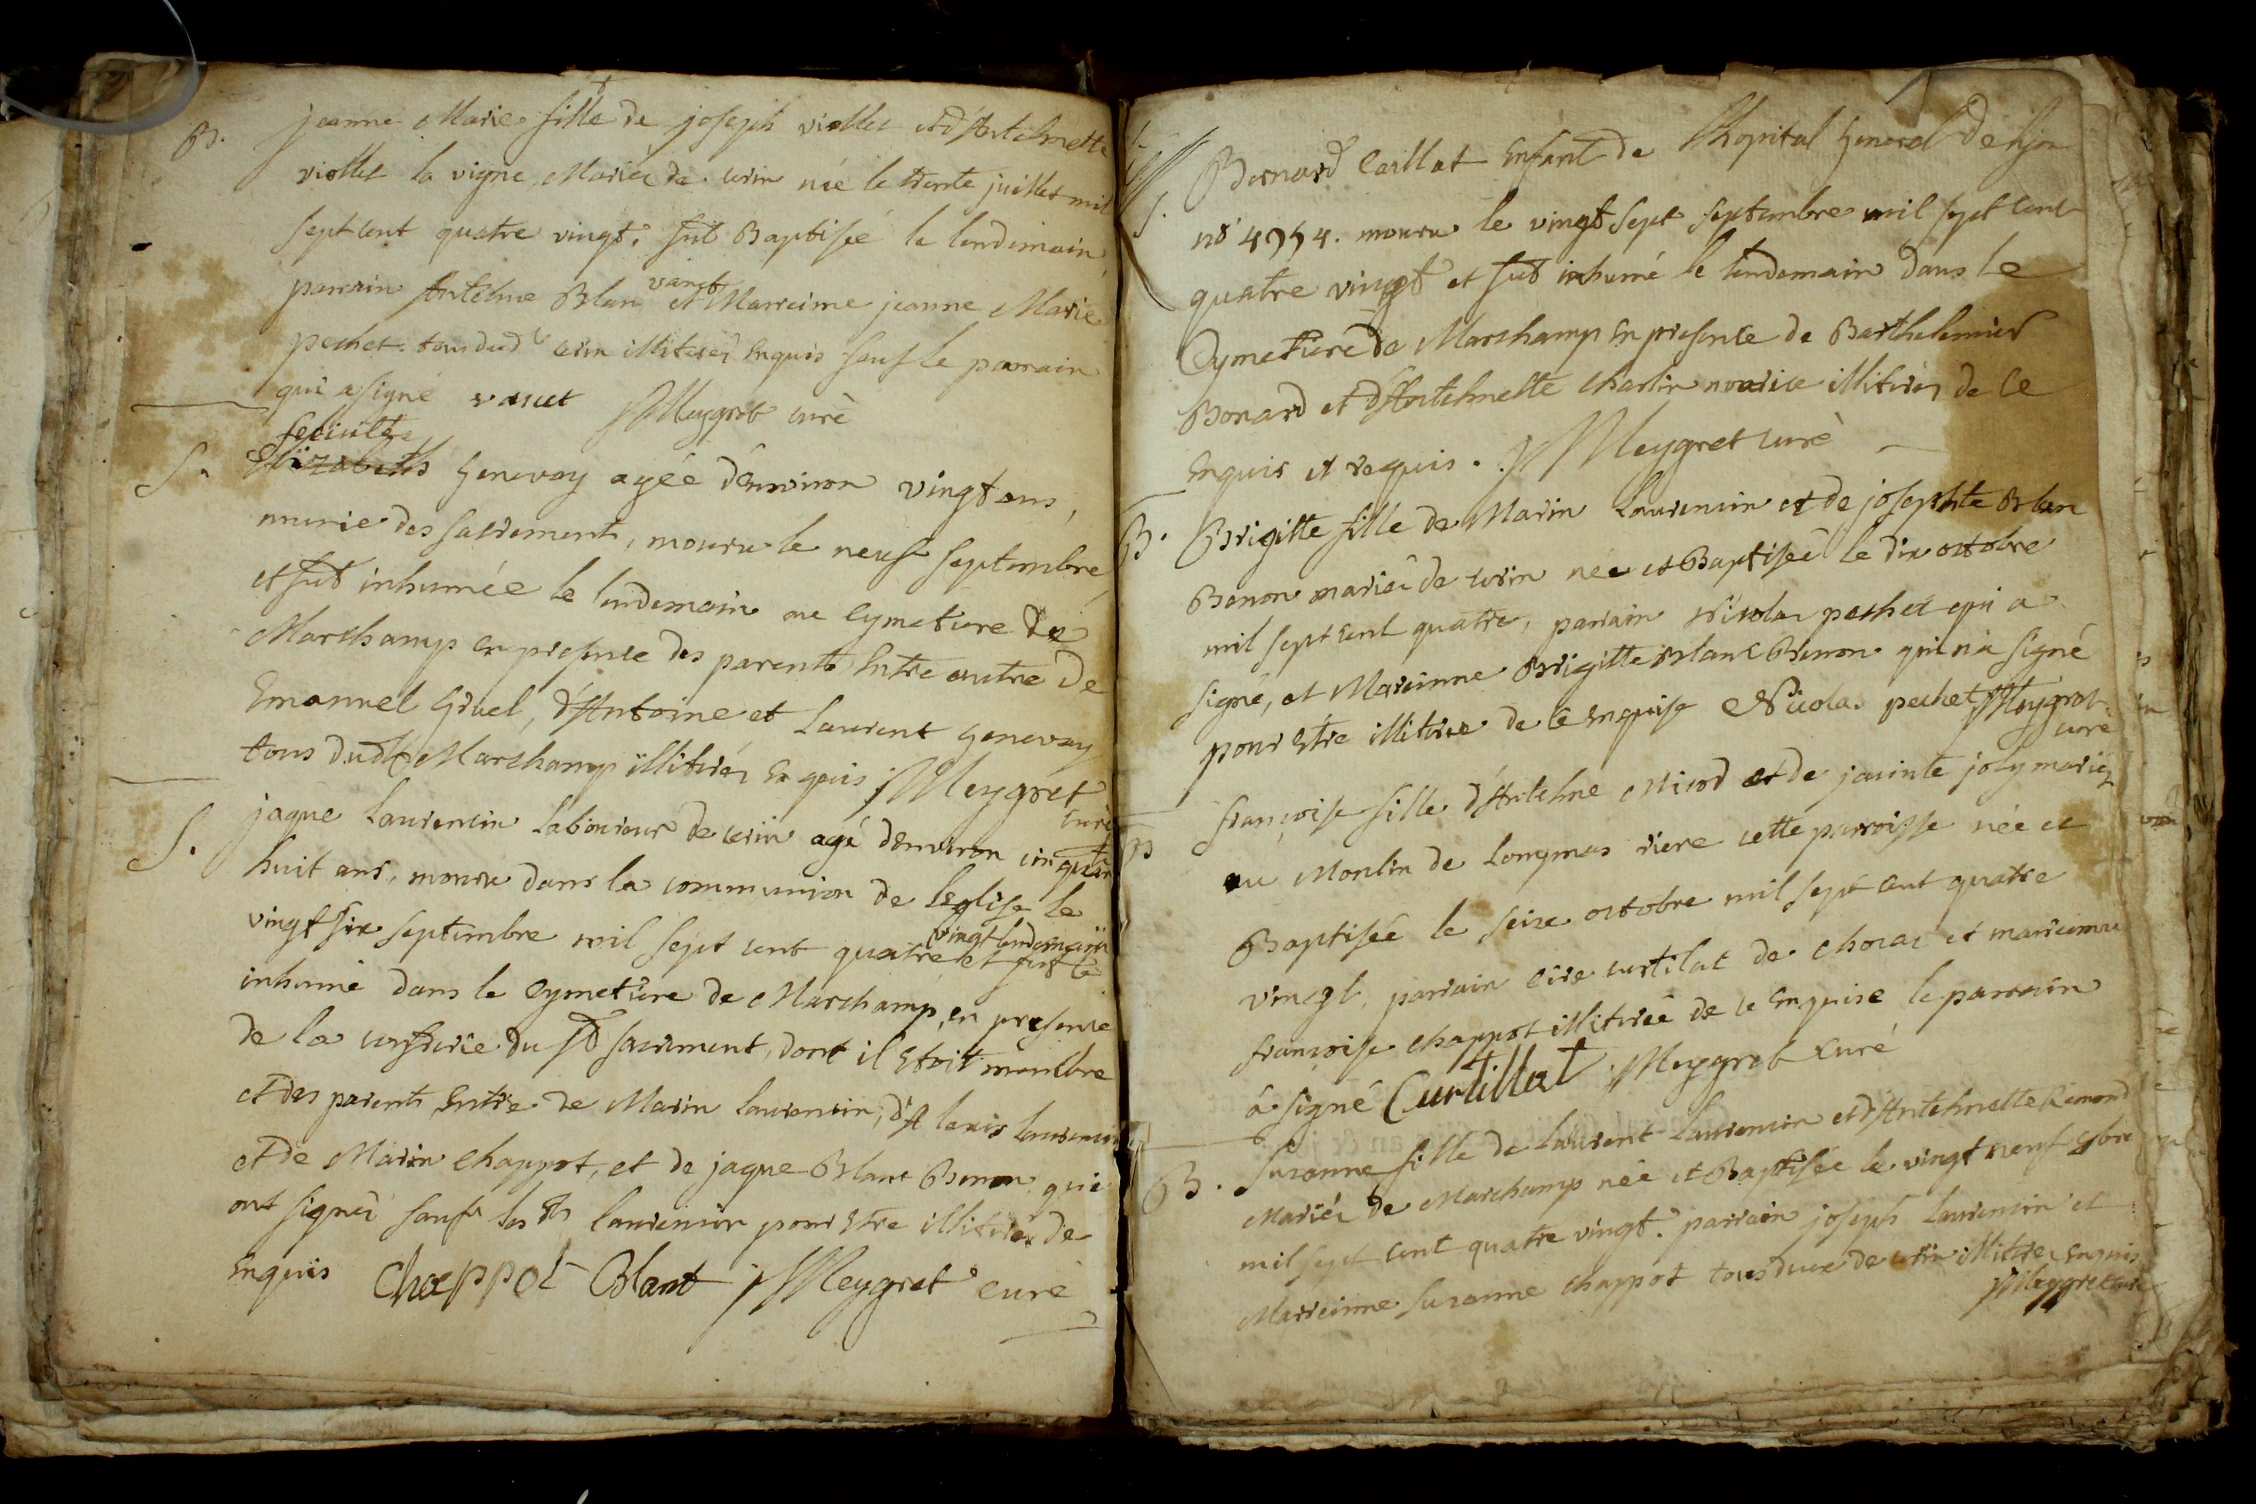 B. jeanne Marie fille de joseph viollet et d'Antelmette
viollet la vigne Mariés de cerin née le trente juillet mil
sept cent quatre vingt, fut Baptisée le lendemain,
parrain Antelme Blan vanet et Marreinne jeanne Marie
pechet. tous dud cerin illiterés enquis sauf le parrain
qui a signé vanet Meygret curè
feciulte
S. Elizabeth Genevay agée d'environ vingt ans,
munie des sacrements, mouru le neuf septembre
et fut inhumée le lendemain au Cymetiere de
Marchamp en presence des parents entre autre de
Emanuel Gruel, d'Antoine et Laurent Genevay
tous dudt Marchamp illiterés enquis Meygret
curè
S. jaque Laurencin laboureur de cerin agé d'environ cinquante
huit ans, mouru dans la communion de l'eglise le
vingt six septembre mil sept cent quatre vingt et fut le lendemain
inhumé dans le Cymetiere de Marchamp, en presence
de la confrerie du St sacrement, dont il etoit membre
et des parents entre de Marin laurencin, d'Alexis laurencin
et de Marin chappot, et de jaque Blanc Benon qui
ont signés sauf les ds laurencin pour etre illiterés de
enquis Chappot Blant Meygret curè
S. Bernard Caillat enfant de l'hopital general de lyon
no 4954. mouru le vingt sept septembre mil sept cent
quatre vingt et fut inhumé le lendemain dans le
Cymetiere de Marchamp en presence de Barthelemier
Bonard et d'Antelmette charlin nourice illiterés de ce
enquis et requis. Meygret curè
B. Brigitte fille de Marin Laurencin et de josephte Blan
Benon mariés de cerin née et Baptisée le dix octobre
mil sept cent quatre, parrain Nicolas pechet qui a
signé, et Mareinne Brigitte Blanc Benon qui n'a signé
pour etre illiterée de ce enquise Nicolas pechet Meygret
curè
B françoise fille d'Antelme Nicod et de jacinte joly mariés
au Moulin de Longmas riere cette parroisse née et
Baptisée le seize octobre mil sept cent quatre
vingt, parrain Cire curtilat de choras et marreinne
françoise chappot illiterée de ce enquise le parrain
a signé Curtillat Meygret curé
B. Suzanne fille de laurent laurencin et d'Antelmette Remond
Mariés de Marchamp née et Baptisée le vingt neuf 8bre
mil sept cent quatre vingt. parrain joseph laurencin et
Marreinne suzanne chappot tous deux de cerin illiterés enquis
Meygret curè